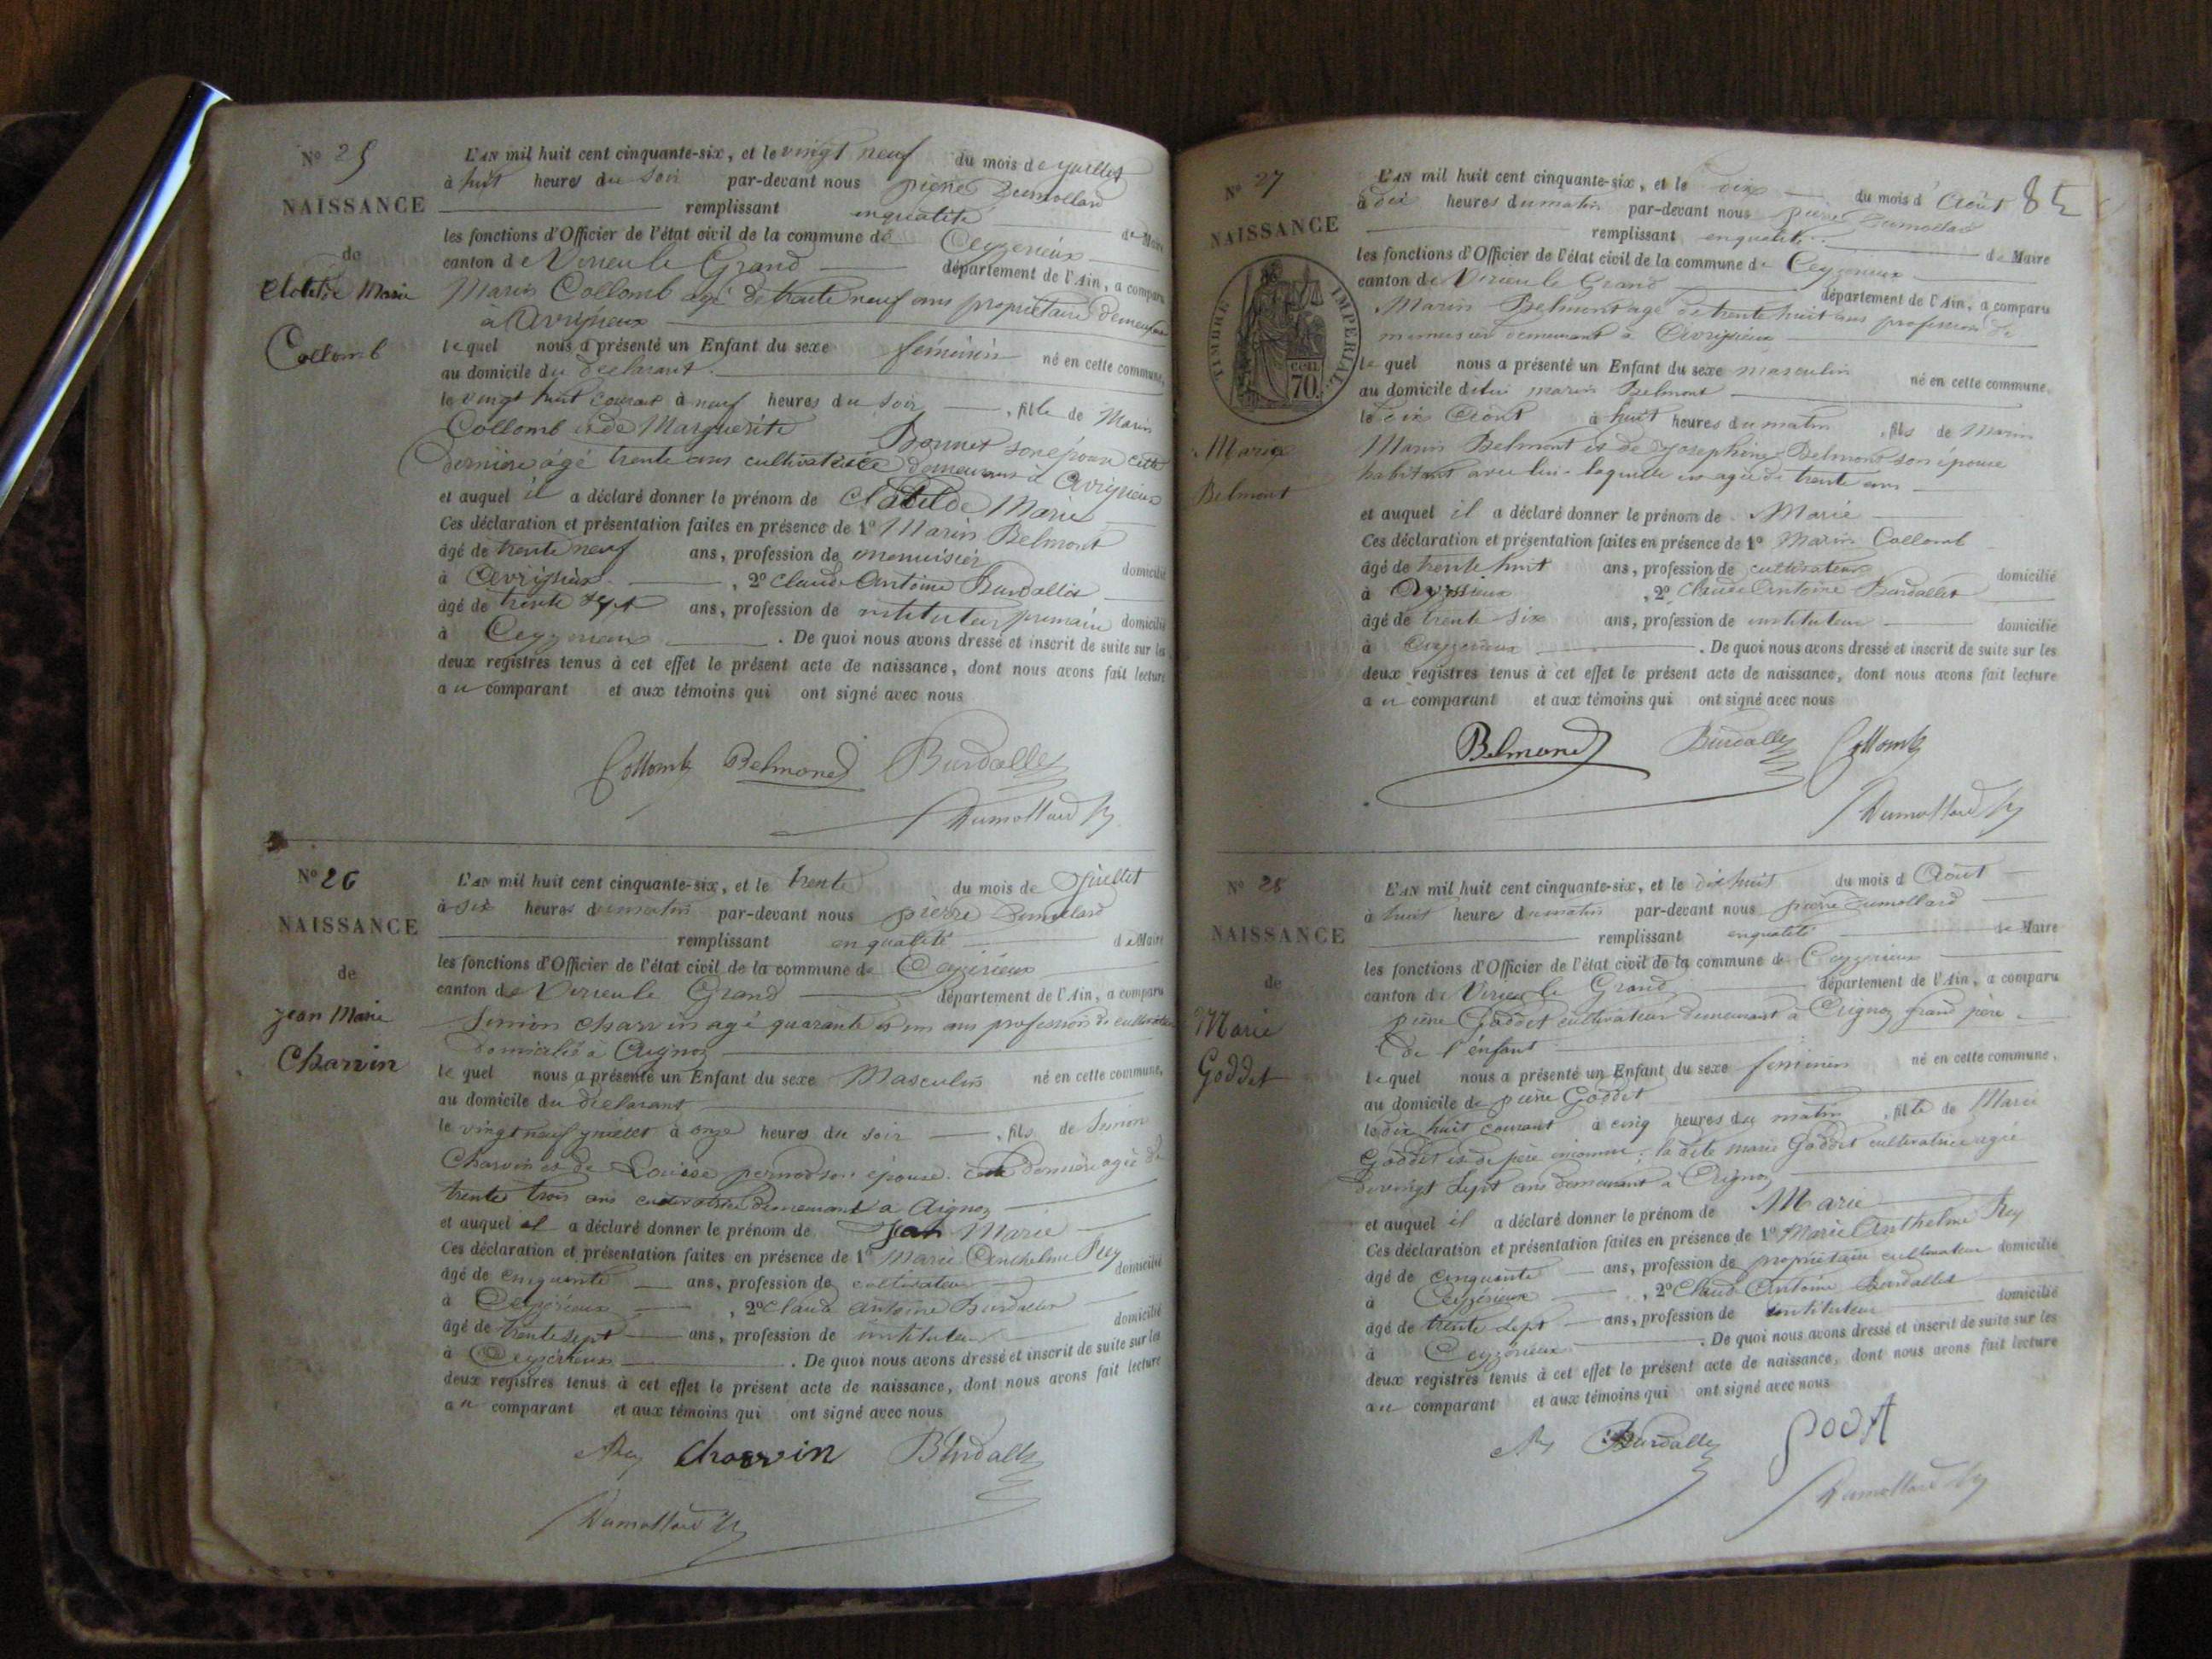 N° 25
NAISSANCE
de
Clotilde Marie
Collomb
L'AN mil huit cent cinquante-six, et le vingt neuf du mois de juillet
à huit heures du soir par-devant nous pierre Dumollard
remplissant enqualité de Maire
les fonctions d'Officier de l'état civil de la commune de Ceyzerieux
canton de Virieu le Grand département de l'Ain, a comparu
Marin Collomb agé de trente neuf ans propriétaire demeurant
à Avrissieux
lequel nous a présenté un Enfant du sexe féminin né en cette commune,
au domicile du déclarant
le vingt huit courant à neuf heures du soir, fille de Marin
Collomb et de Marguerite Bonnet son épouse cette
dernière agé trente ans cultivatrice demeurant à Avrissieux
et auquel il a déclaré donner le prénom de Clotilde Marie
Ces déclaration et présentation faites en présence de 1° Marin Belmont
âgé de trente neuf ans, profession de menuisier domicilié
à Avrissieux, 2° Claude Antoine Burdallet
âgé de trente sept ans, profession de instituteur primaire domicilié
à Ceyzerieux. De quoi nous avons dressé et inscrit de suite sur les
deux registres tenus à cet effet le présent acte de naissance, dont nous avons fait lecture
au comparant et aux témoins qui ont signé avec nous
Collomb Belmond Burdallet
Dumollard
N° 26
NAISSANCE
de
Jean Marie
Charvin
L'AN mil huit cent cinquante-six, et le trente du mois de Juillet
à six heures du matin par-devant nous pierre Dumollard
remplissant en qualité de Maire
les fonctions d'Officier de l'état civil de la commune de Ceyzérieux
canton de Virieu le Grand département de l'Ain, a comparu
Simon Charvin agé quarante et un ans profession de cultivateur
domicilié à Aignoz
lequel nous a présenté un Enfant du sexe Masculin né en cette commune,
au domicile du déclarant
le vingt neuf juillet à onze heures du soir, fils de Simon
Charvin et de Louise pernod son épouse. Cette dernière agée de
trente trois ans cultivatrice demeurant à Aignoz
et auquel il a déclaré donner le prénom de Jean Marie
Ces déclaration et présentation faites en présence de 1° Marie Anthelme Rey
âgé de cinquante ans, profession de cultivateur domicilié
à Ceyzérieux, 2° Claude Antoine Burdallet
âgé de trente sept ans, profession de instituteur domicilié
à Ceyzérieux. De quoi nous avons dressé et inscrit de suite sur les
deux registres tenus à cet effet le présent acte de naissance, dont nous avons fait lecture
au comparant et aux témoins qui ont signé avec nous
Rey Charvin Burdallet
Dumollard
85
N° 27
NAISSANCE
TIMBRE IMPERIAL
CEN. 70.
Marie
Belmont
L'AN mil huit cent cinquante-six, et le dix du mois d'Août
à dix heures du matin par-devant nous pierre Dumollard
remplissant enqualité de Maire
les fonctions d'Officier de l'état civil de la commune de Ceyzerieux
canton de Virieu le Grand département de l'Ain, a comparu
Marin Belmont agé de trente huit ans profession de
menuisier demeurant à Avrissieux
lequel nous a présenté un Enfant du sexe masculin né en cette commune,
au domicile de lui marin Belmont
le dix Août à huit heures du matin, fils de Marin
Marin Belmont et de Josephine Belmont son épouse
habitant avec lui laquelle est agée de trente ans
et auquel il a déclaré donner le prénom de Marie
Ces déclaration et présentation faites en présence de 1° Marin Collomb
âgé de trente huit ans, profession de cultivateur domicilié
à Avrissieux, 2° Claude Antoine Burdallet
âgé de trente six ans, profession de instituteur domicilié
à Ceyzerieux. De quoi nous avons dressé et inscrit de suite sur les
deux registres tenus à cet effet le présent acte de naissance, dont nous avons fait lecture
au comparant et aux témoins qui ont signé avec nous
Belmond Burdallet Collomb
Dumollard
N° 28
NAISSANCE
de
Marie
Goddet
L'AN mil huit cent cinquante-six, et le dix huit du mois d Août
à huit heures du matin par-devant nous pierre Dumollard
remplissant enqualité de Maire
les fonctions d'Officier de l'état civil de la commune de Ceyzerieux
canton de Virieu le Grand département de l'Ain, a comparu
pierre Goddet cultivateur demeurant à Aignoz grand père
de l'enfant
lequel nous a présenté un Enfant du sexe féminin né en cette commune,
au domicile de pierre Goddet
le dix huit courant à cinq heures du matin, fille de Marie
Goddet et de père inconnu; la dite marie Goddet cultivatrice agée
de vingt sept ans demeurant à Aignoz
et auquel il a déclaré donner le prénom de Marie
Ces déclaration et présentation faites en présence de 1° Marie Anthelme Rey
âgé de cinquante ans, profession de propriétaire cultivateur domicilié
à Ceyzérieux, 2° Claude Antoine Burdallet
âgé de trente sept ans, profession de instituteur domicilié
à Ceyzérieux. De quoi nous avons dressé et inscrit de suite sur les
deux registres tenus à cet effet le présent acte de naissance, dont nous avons fait lecture
au comparant et aux témoins qui ont signé avec nous
Rey Burdallet
Dumollard